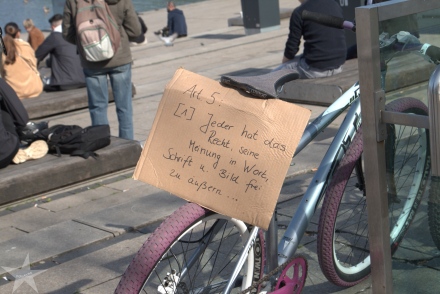 Art 5.
[1] Jeder hat das
Recht, seine
Meinung in Wort,
Schrift u. Bild frei
zu äußern ...